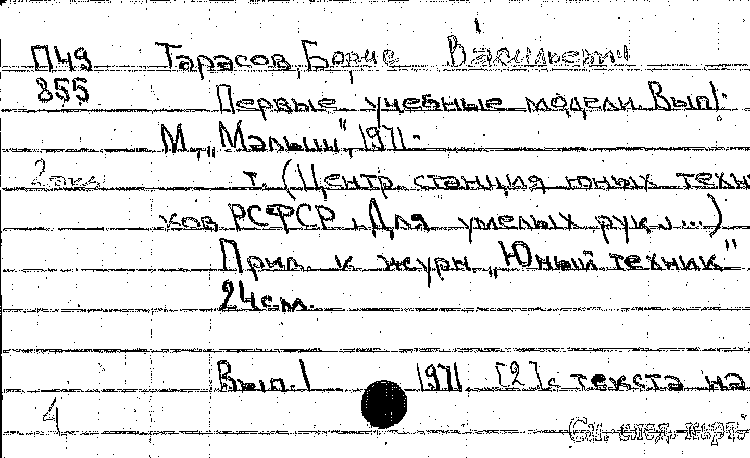 П49 Тарасов, Борис Васильевич
855 Первые учебные модели. Вып1-
М., „Малыш", 1971-
2 экз. т. (Центр. станция юных техни
ков РСФСР. Для умелых рук...)
Прил. к журн. „Юный техник"
24 см.
Вып. 1 1971. [2] с текста на
4
См. след. карт.